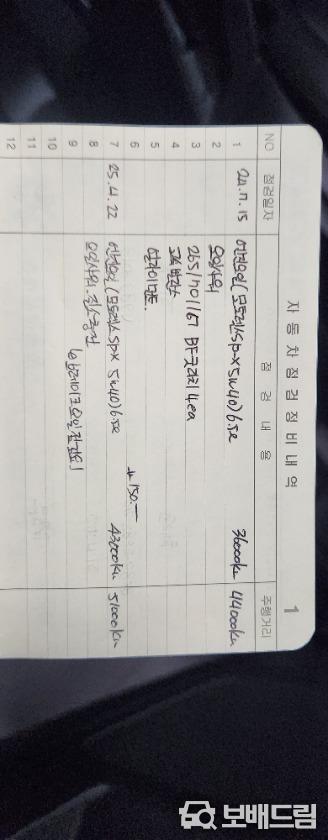 1
자동차점검정비내역
NO 점검일자 점 검 내 용 주행거리
1 24.7.15 엔진오일(모토렉스 SP-X 5W40) 6.5l 36000km 44000km
2 오일샤워
3 265/70/17 BF굿리치 4ea
4 교체
5
6 + 150.-
7 25.4.22 엔진오일(모토렉스 SPX 5W40) 6.5l 43000km 51000km
8 오일샤워. 질소충전
9 (브레이크오일점검요)
10
11
12
보배드림